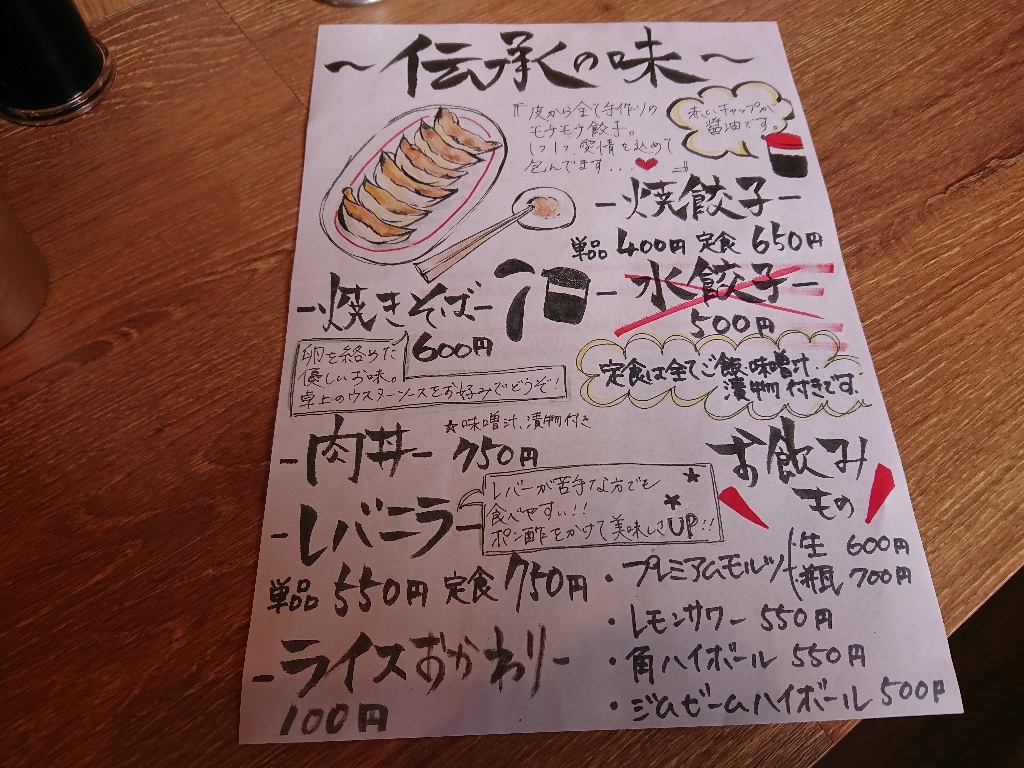 〜伝承の味〜
『皮から全て手作りの
モケモケ餃子。
1つ1つ愛情を込めて
包んでます...❤』
赤いキャップが
醤油です。
-焼餃子-
単品400円 定食650円
-水餃子-
500円
定食は全てご飯、味噌汁、
漬物付きです
-焼きそば-
600円
卵を絡めた
優しいお味。
卓上のウスターソースをお好みでどうぞ!
★味噌汁、漬物付き
-肉丼- 750円
-レバニラ-
レバーが苦手な方でも
食べやすい!!
ポン酢をかけて美味しさUP!!
単品550円 定食750円
-ライスおかわり-
100円
お飲み
もの
・プレミアムモルツ
生 600円
瓶 700円
・レモンサワー 550円
・角ハイボール 550円
・ジムビームハイボール 500円